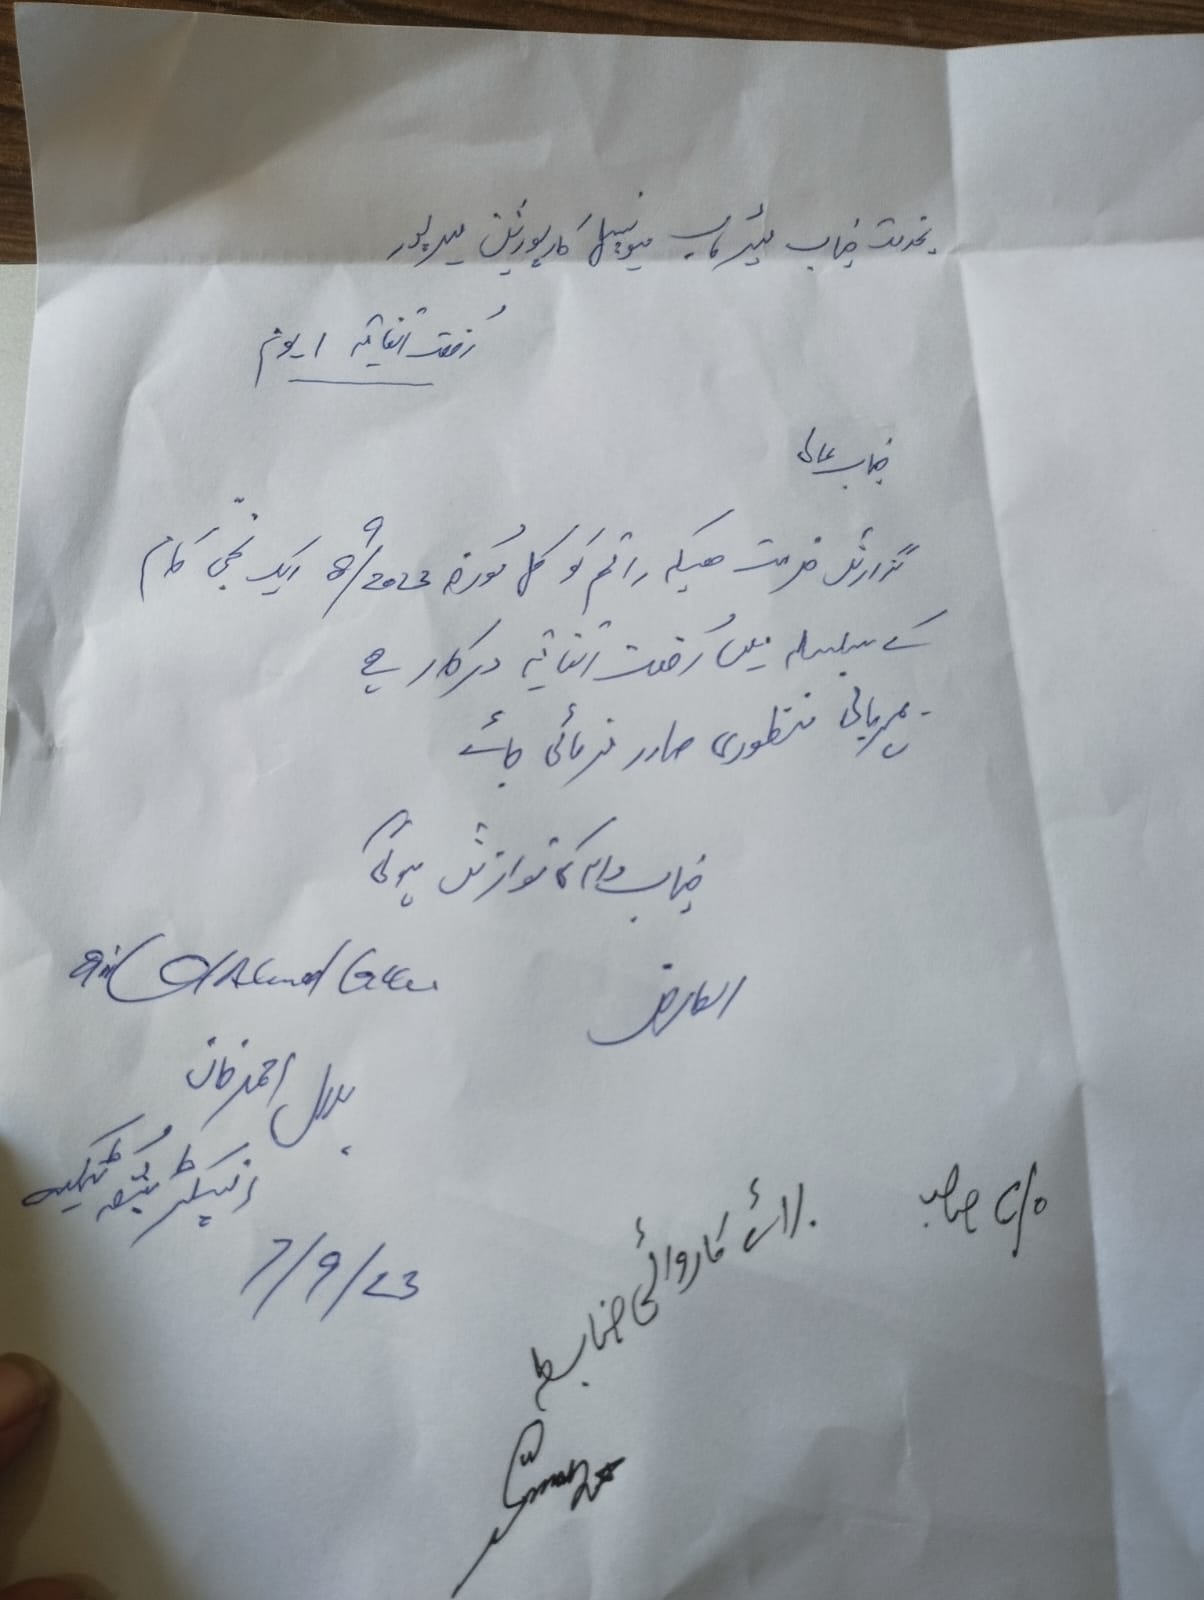 بخدمت جناب میئر صاحب میونسپل کارپوریشن میرپور
رخصت اتفاقیہ 1 یوم
جناب عالی
گزارش خدمت ھیکہ راقم کو کل مورخہ 8/9/2023 ایک نجی کام
کے سلسلہ میں رخصت اتفاقیہ درکار ہے
۔ مہربانی منظوری صادر فرمائی جائے
جناب والا کا نوازش ہوگی
العارض
Ahmed
احمد خان
انسپکٹر
7/9/23
C/O صاحب
برائے کاروائی ضابطہ